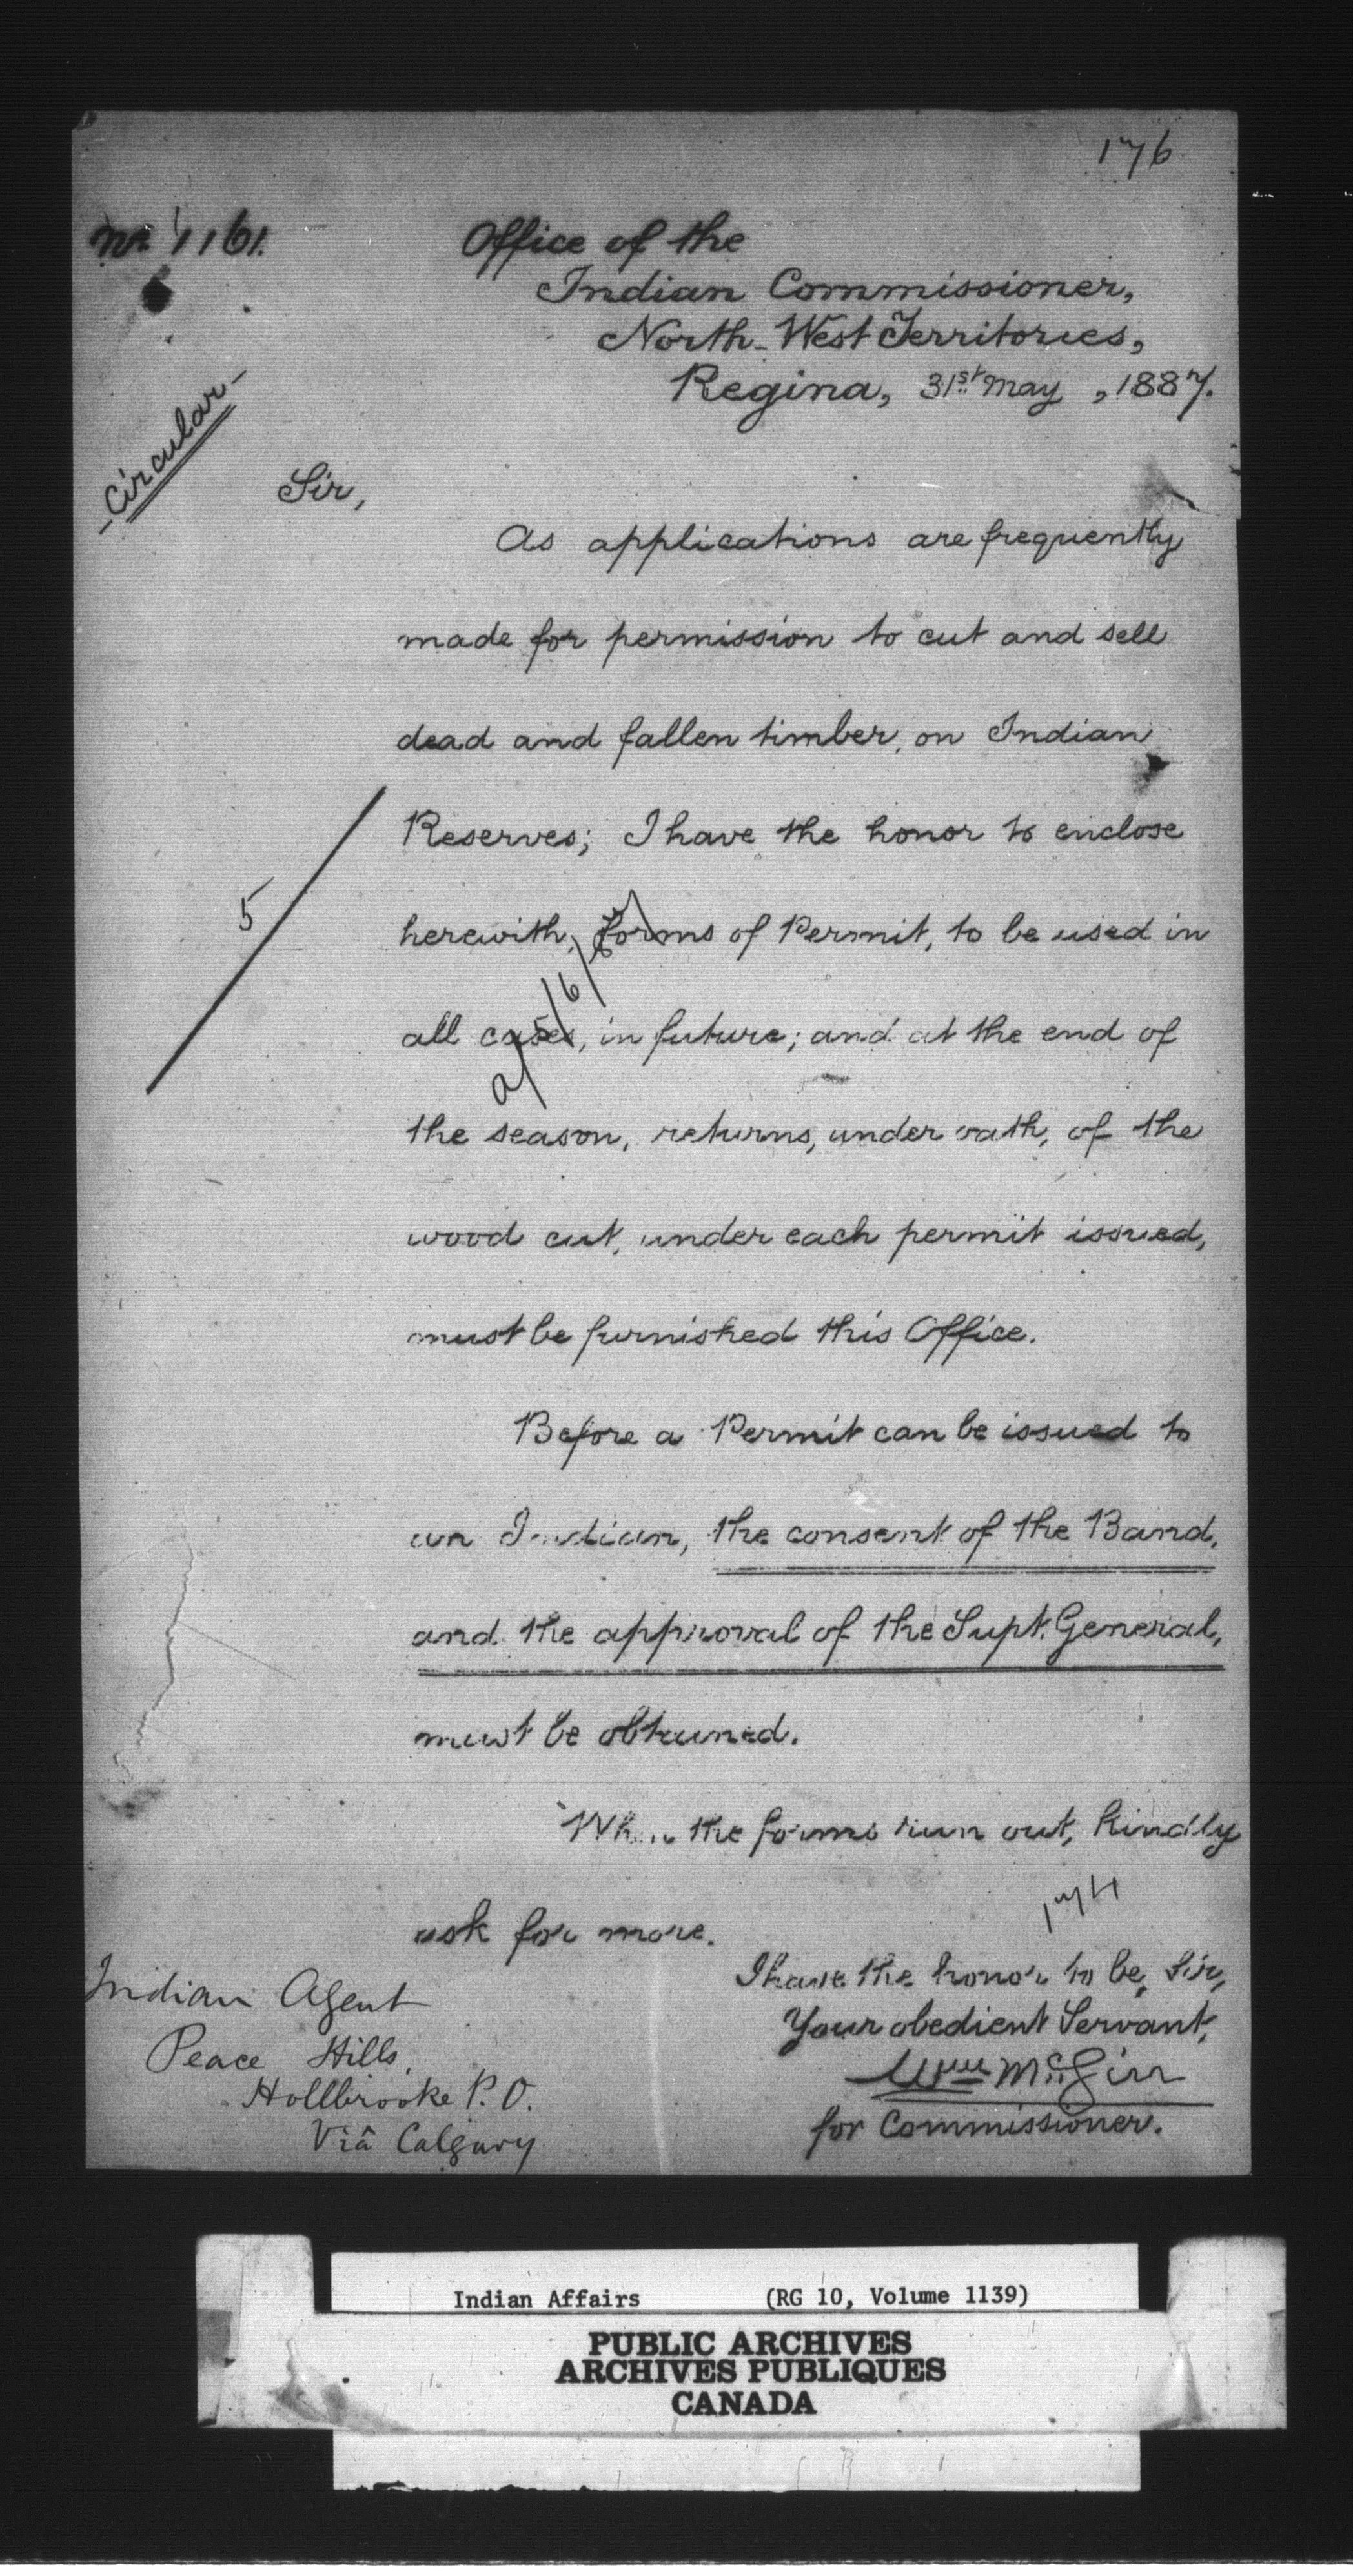 176
No 1161.
Office of the
Indian Commissioner,
North-West Territories,
Regina, 31st May, 1887.
-Circular-
Sir,
As applications are frequently
made for permission to cut and sell
dead and fallen timber, on Indian
Reserves; I have the honor to enclose
herewith, forms of Permit, to be used in
all cases, in future; and at the end of
the season, returns, under oath, of the
wood cut, under each permit issued,
must be furnished this Office.
5
Before a Permit can be issued to
an Indian, the consent of the Band,
and the approval of the Supt. General,
must be obtained.
When the forms run out, kindly
ask for more.
174
I have the honor to be, Sir,
Your obedient Servant,
Wm McGirr
for Commissioner.
Indian Agent
Peace Hills,
Hollbrooke P.O.
Viâ Calgary
Indian Affairs (RG 10, Volume 1139)
PUBLIC ARCHIVES
ARCHIVES PUBLIQUES
CANADA